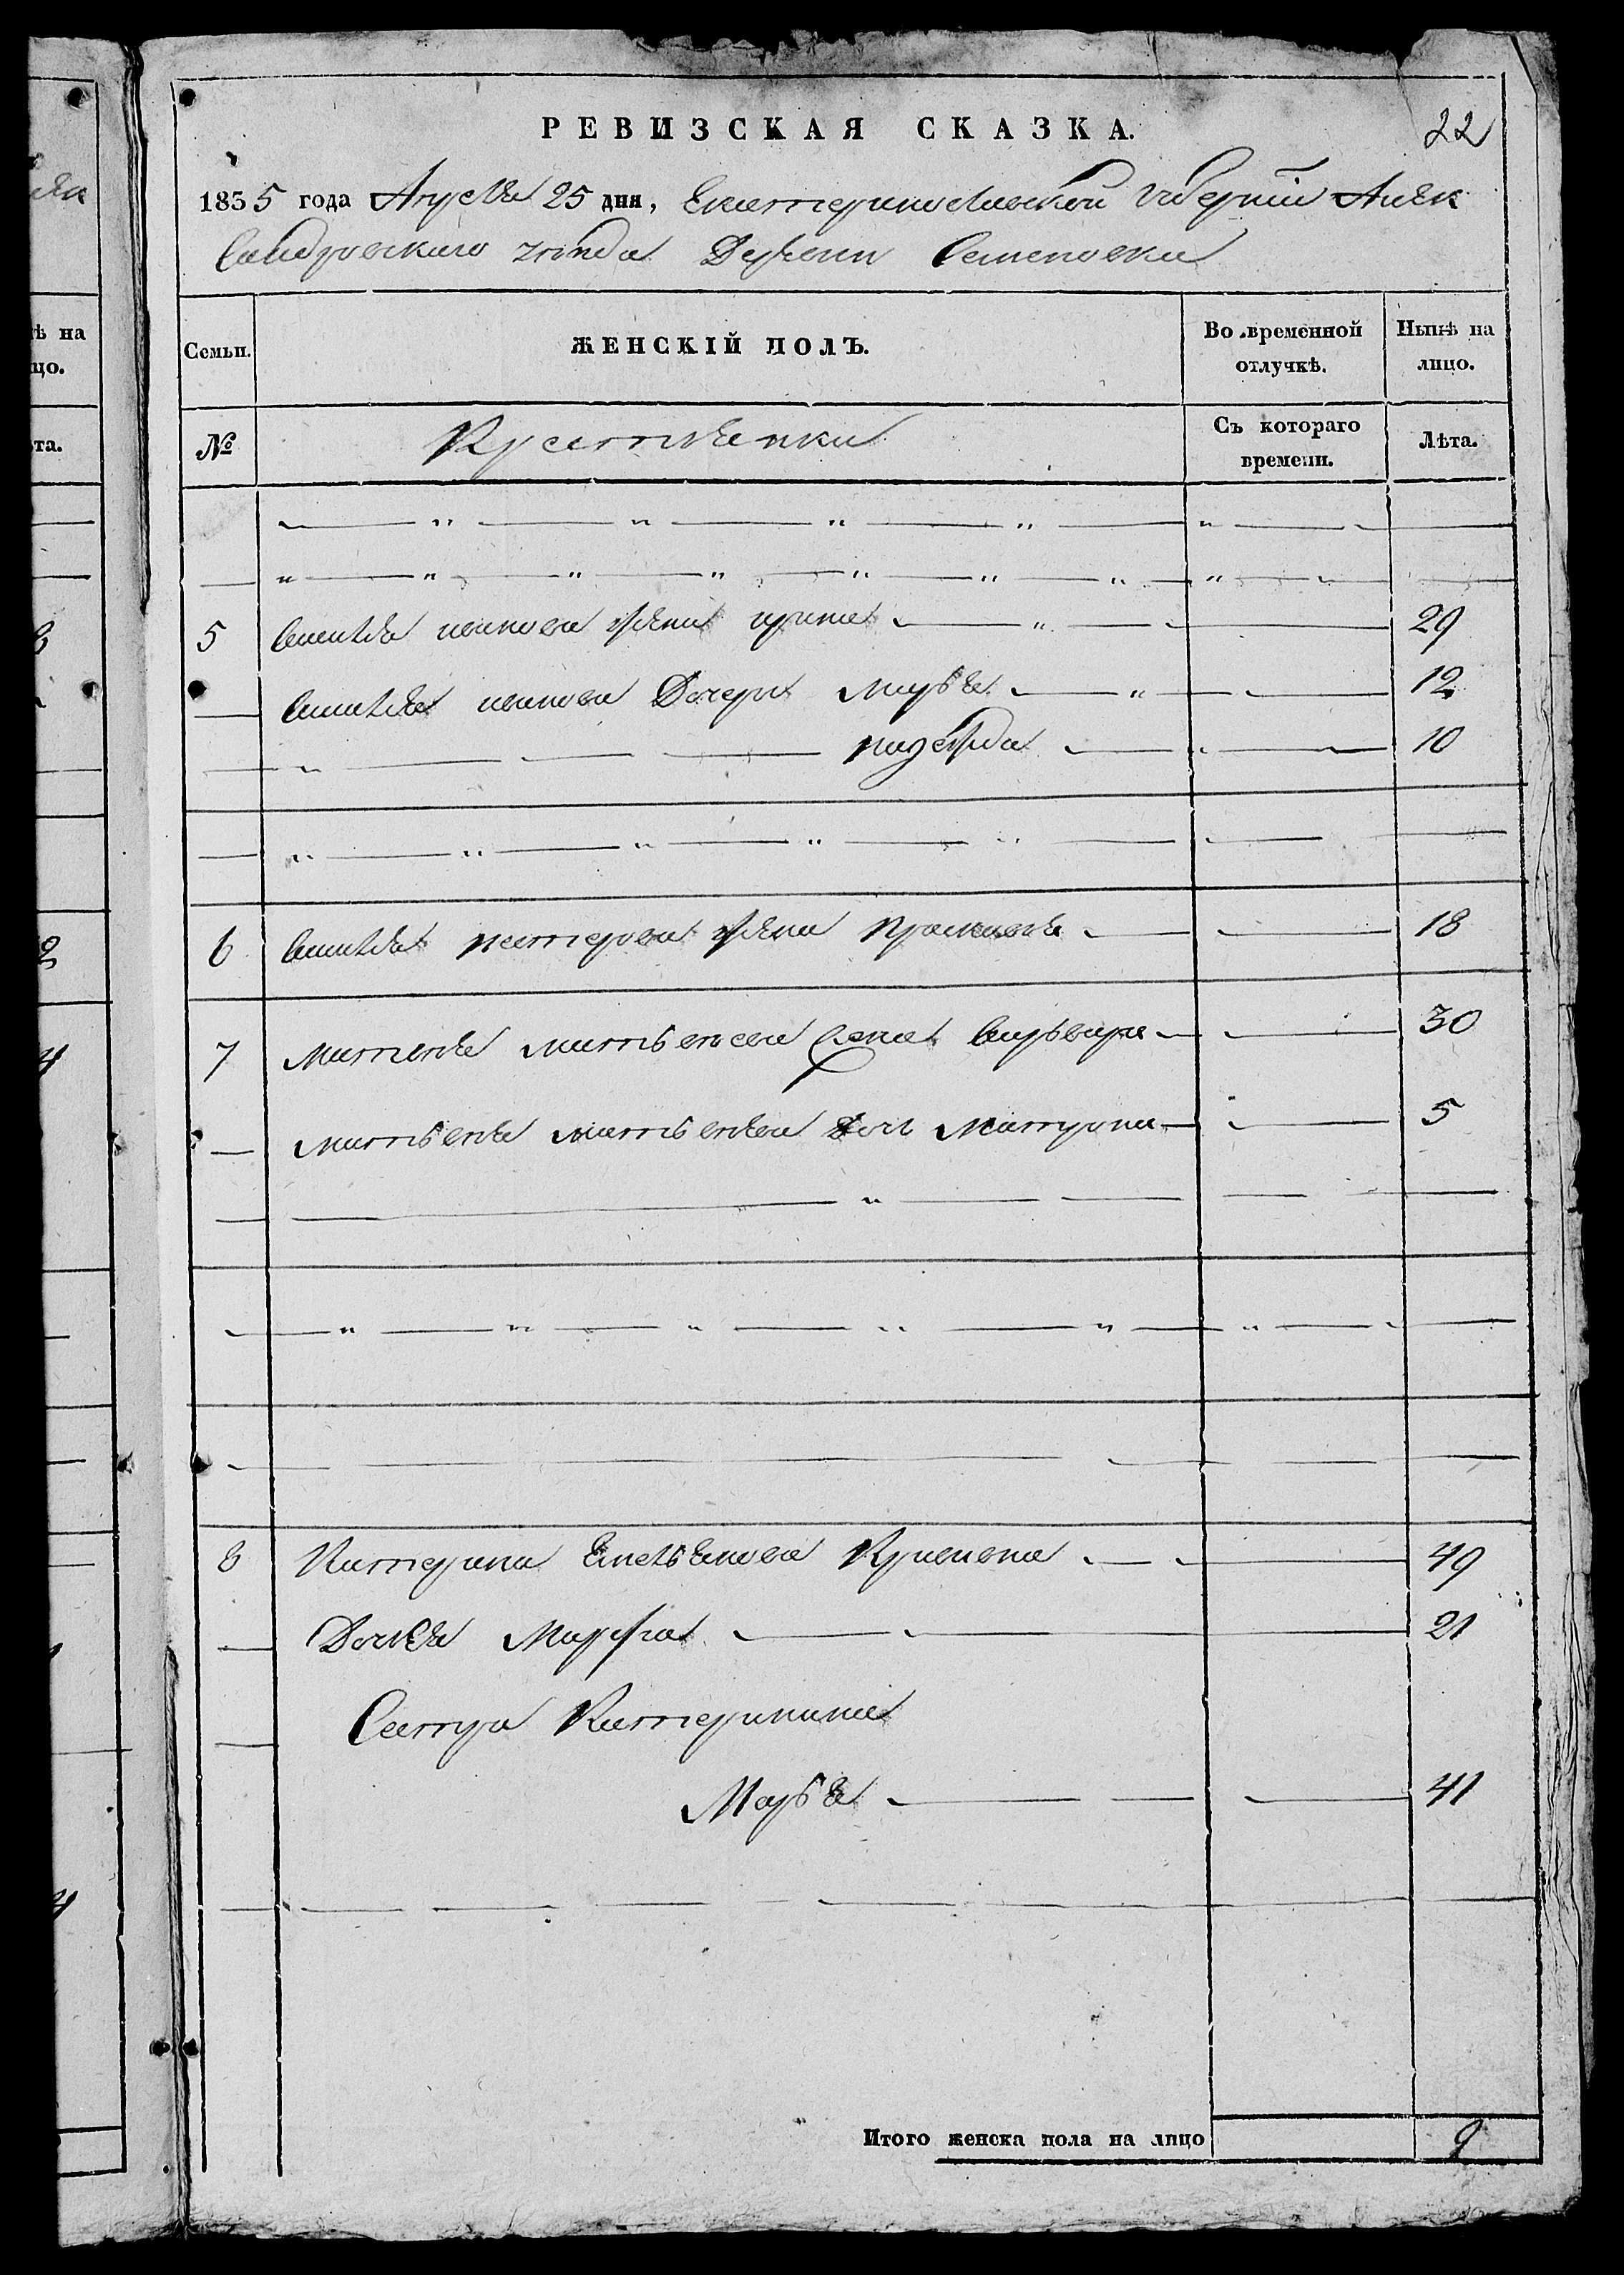 РЕВИЗСКАЯ СКАЗКА.
22
1835 года Апреля 25 дня, Екатеринославской Губернии Алек
сандровского уезда Деревни Семеновки
Семьи.
ЖЕНСКІЙ ПОЛЪ.
Во временной отлучкѣ.
Нынѣ на лицо.
№
Крестьянки
Съ котораго времени.
Лѣта.
5 иванова жена ирина 29
иванова Дочери марья 12
надежда 10
6 петрова жена 18
7 матвея матвеева жена варвара 30
матвея матвеева дочь Матрона 5
8 Катерина Емельянова 49
Дочка Марфа 21
Сестра Катеринина
Марья 41
Итого женска пола на лицо 9
ѣ на
цо.
та.